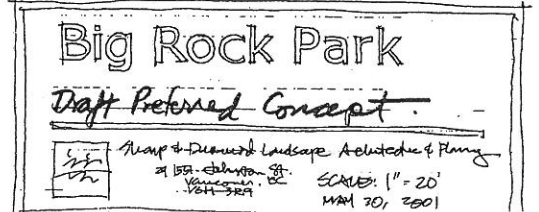 Big Rock Park
Draft Preferred Concept.
Sharp & Diamond Landscape Architecture & Planning
Johnston St.
Vancouver, BC
V6H 3R9
SCALE: 1" = 20'
MAY 30, 2001